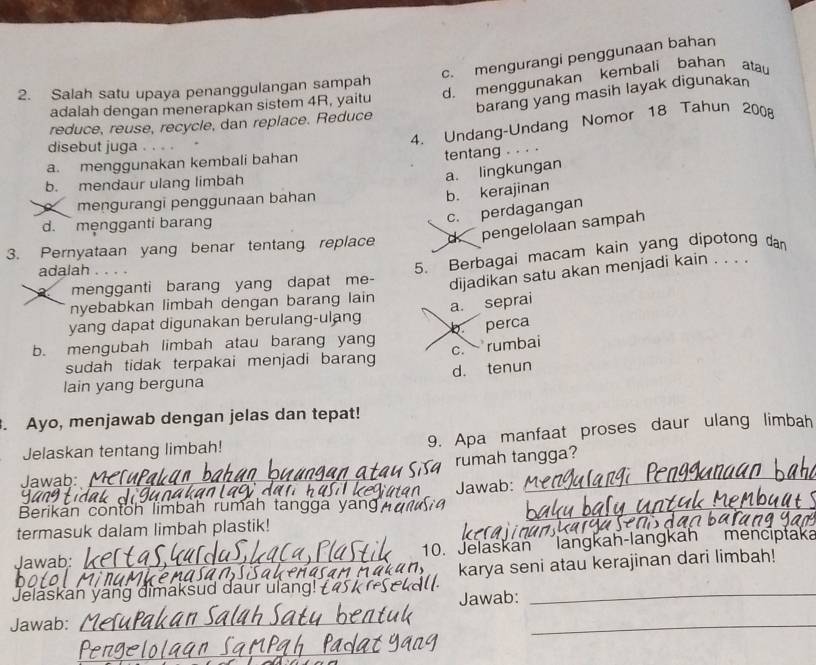 2. Salah satu upaya penanggulangan sampah
adalah dengan menerapkan sistem 4R, yaitu
reduce, reuse, recycle, dan replace. Reduce
disebut juga . . . .
a. menggunakan kembali bahan
b. mendaur ulang limbah
mengurangi penggunaan bahan
d. mengganti barang
3. Pernyataan yang benar tentang replace
adalah . . . .
a. mengganti barang yang dapat me-
nyebabkan limbah dengan barang lain
yang dapat digunakan berulang-ulang
b. mengubah limbah atau barang yang
sudah tidak terpakai menjadi barang
lain yang berguna
c. mengurangi penggunaan bahan
d. menggunakan kembali bahan atau
barang yang masih layak digunakan
4. Undang-Undang Nomor 18 Tahun 2008
tentang . . . .
a. lingkungan
b. kerajinan
c. perdagangan
d. pengelolaan sampah
5. Berbagai macam kain yang dipotong dan
dijadikan satu akan menjadi kain . . . .
a. seprai
b. perca
c. rumbai
d. tenun
. Ayo, menjawab dengan jelas dan tepat!
Jelaskan tentang limbah!
Jawab: Merupakan bahan buangan atau sisa
yang tidak digunakan lagi dari hasil kegiatan
Berikan contoh limbah rumah tangga yang manusia
termasuk dalam limbah plastik!
Jawab: kertas, kardus, kaca, Plastik
botol minum kemasan, sisa kemasan makan,
Jelaskan yang dimaksud daur ulang! task resek dll.
Jawab: Merupakan Salah Satu bentuk
Pengelolaan Sampah Padat yang
9. Apa manfaat proses daur ulang limbah
rumah tangga?
Jawab: Mengurangi Penggunaan baha
baku baru untuk Membuat s
kerajinan, karya seni, dan barang yan
10. Jelaskan langkah-langkah menciptaka
karya seni atau kerajinan dari limbah!
Jawab: